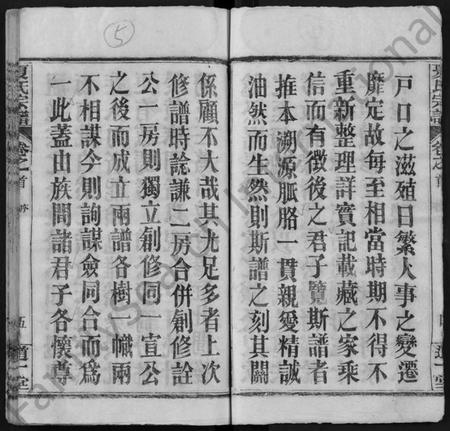 戶口之滋殖日繁人事之變遷
靡定故每至相當時期不得不
重新整理詳實記載藏之家乘
信而有徵後之君子覽斯譜者
推本溯源脈胳一貫親愛精誠
油然而生然則斯譜之刻其關
係顧不大哉其尤足多者上次
修譜時詮謙二房合併創修詮
公一房則獨立創修同一宣公
之後而成立兩譜各樹一幟兩
不相謀今則詢謀僉同合而為
一此蓋由族間諸君子各懷尊
氏宗譜
卷之首
氏宗譜 卷之首
五
道一堂
道一堂
5
FamilySearch International